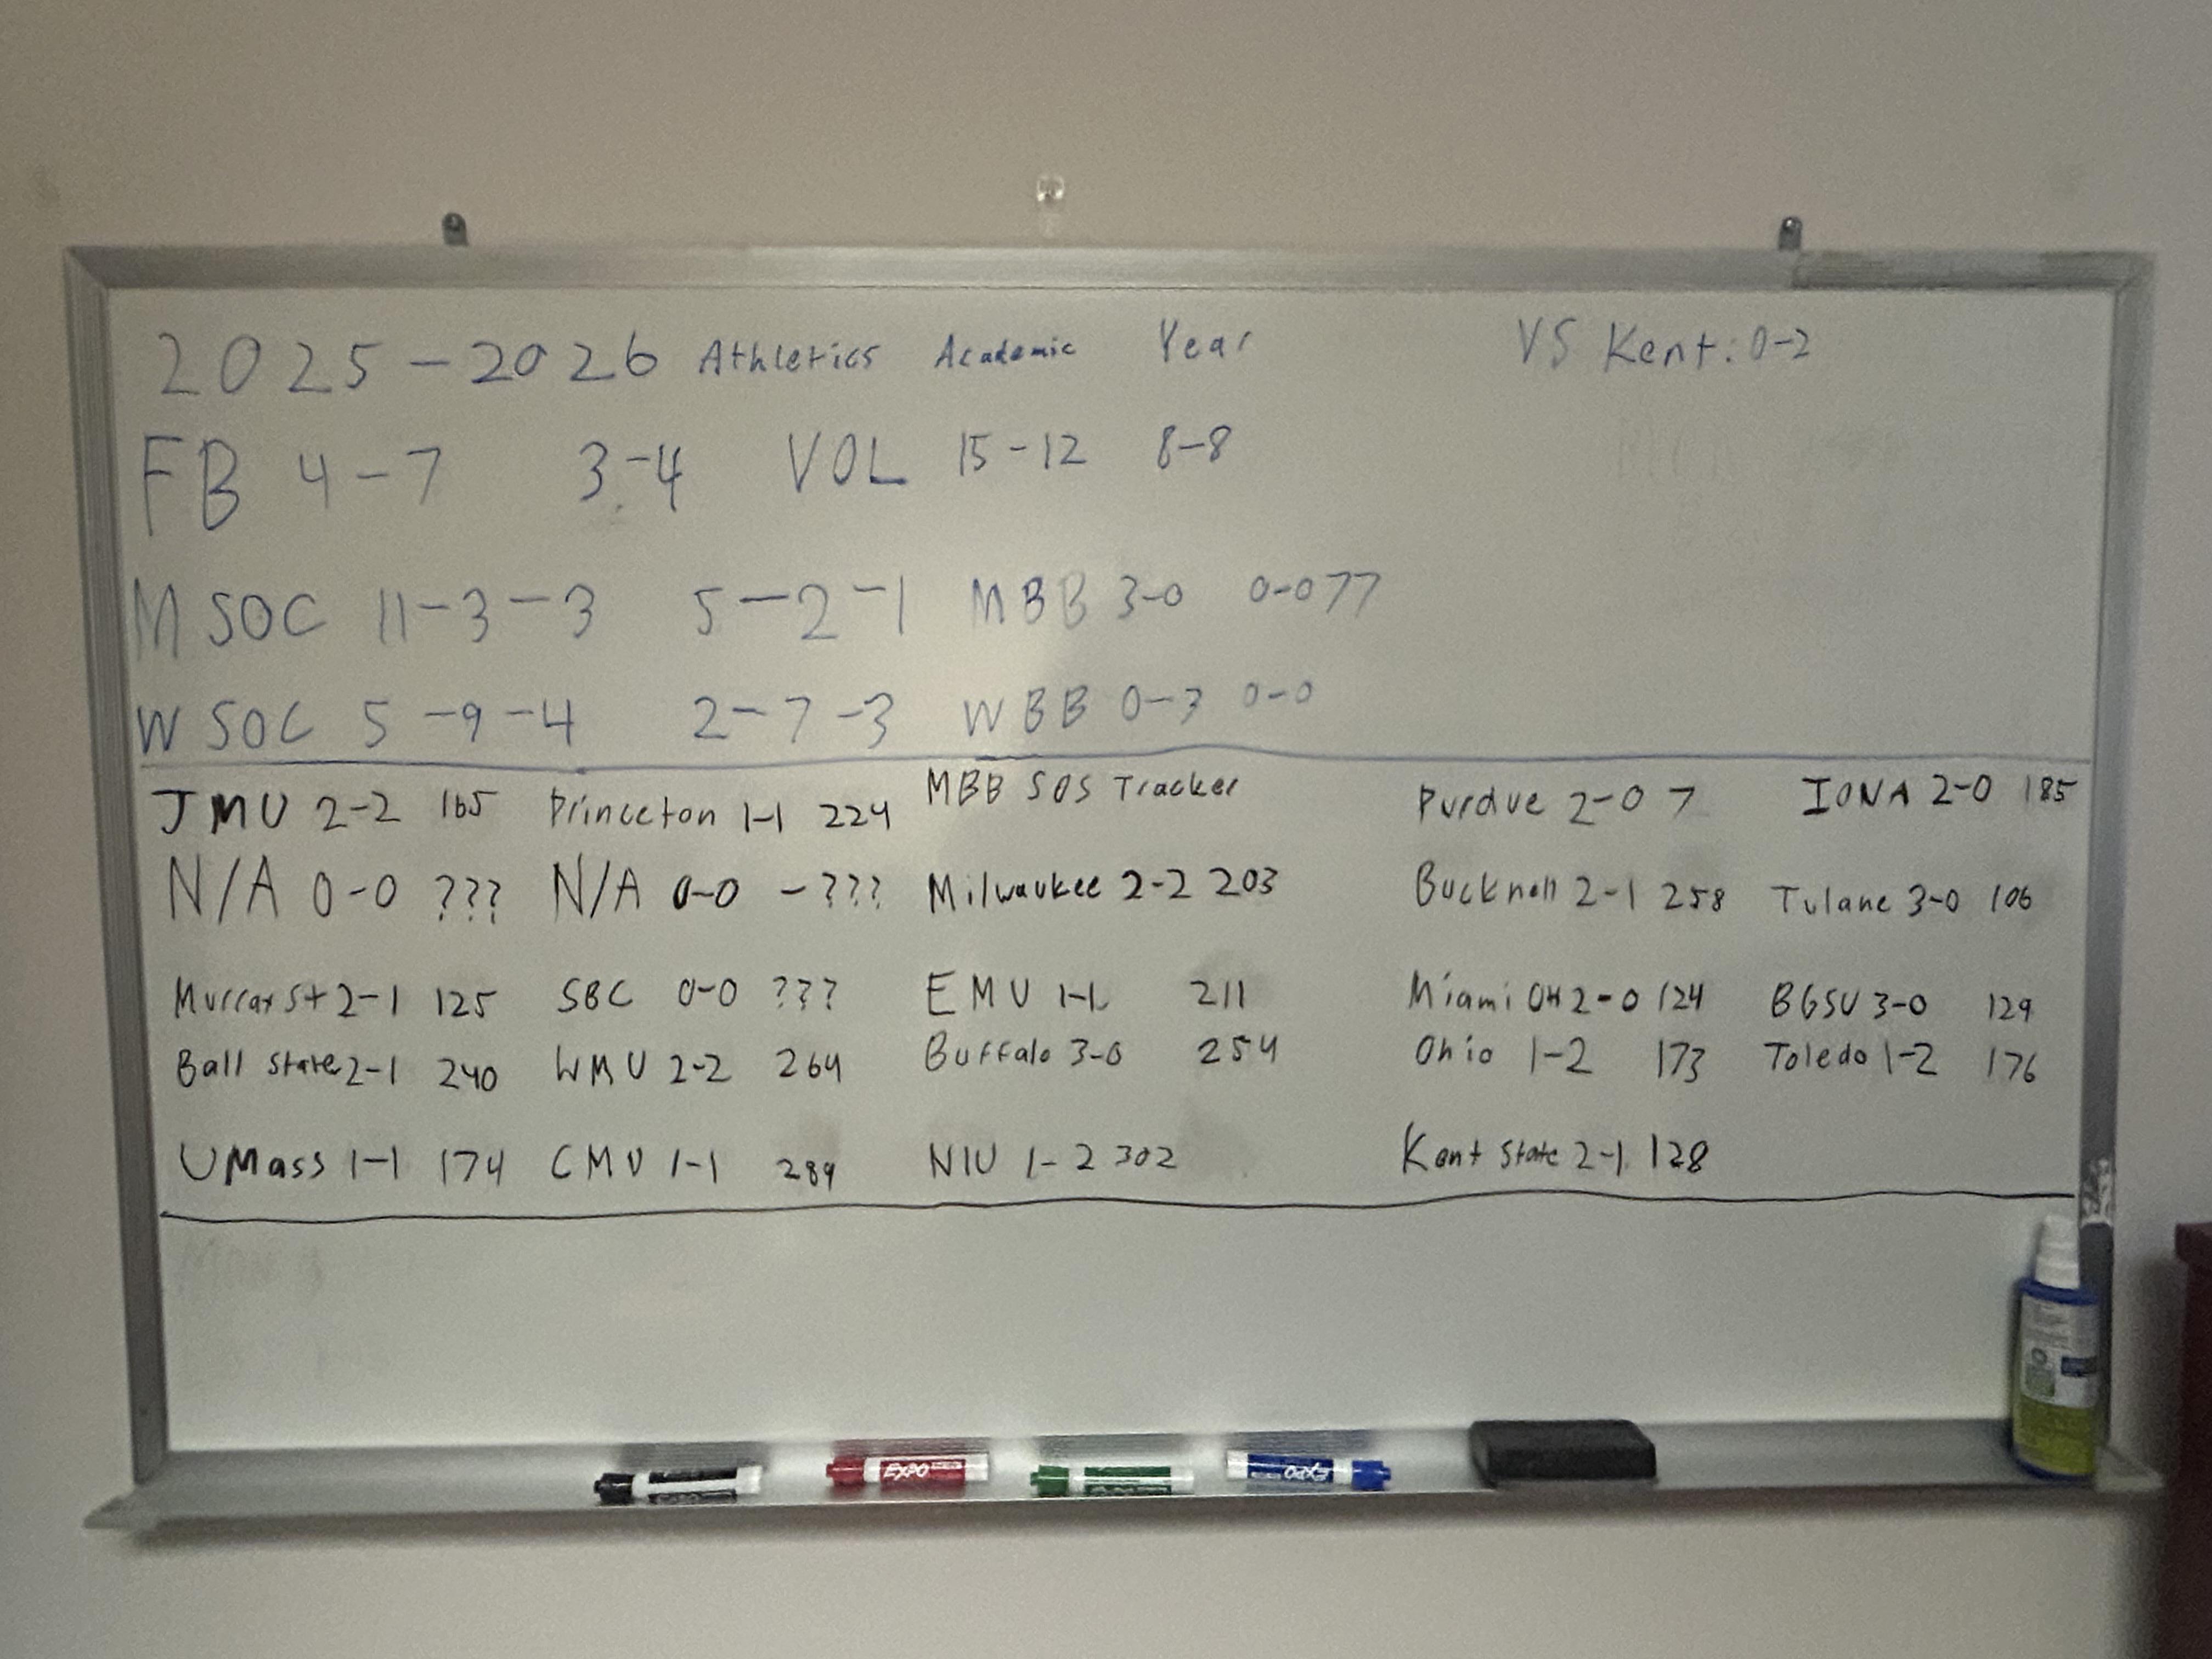 2025-2026 Athletics Academic Year VS Kent: 0-2
FB 4-7 3-4 VOL 15-12 8-8
M SOC 11-3-3 5-2-1 MBB 3-0 0-0 77
W SOC 5-9-4 2-7-3 WBB 0-3 0-0
MBB SOS Tracker
JMU 2-2 165 Princeton 1-1 224 Purdue 2-0 7 IONA 2-0 185
N/A 0-0 ??? N/A 0-0 -??? Milwaukee 2-2 203 Bucknell 2-1 258 Tulane 3-0 106
Murray St 2-1 125 SBC 0-0 ??? EMU 1-1 211 Miami OH 2-0 124 BGSU 3-0 129
Ball State 2-1 240 WMU 2-2 264 Buffalo 3-0 254 Ohio 1-2 173 Toledo 1-2 176
UMass 1-1 174 CMU 1-1 289 NIU 1-2 302 Kent State 2-1 128
EXPO
EXPO